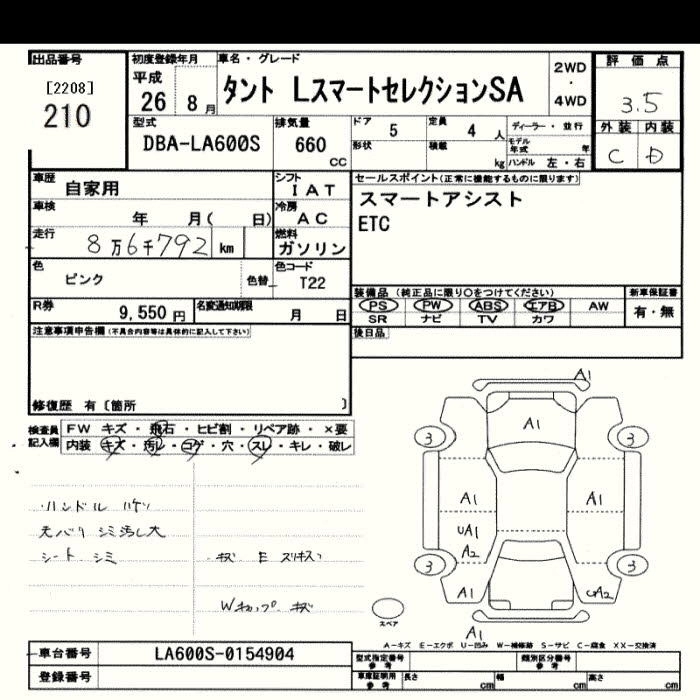 出品番号
[2208]
210
初度登録年月
平成
26 8 月
車名・グレード
タント LスマートセレクションSA
2WD
・
4WD
評価点
3.5
外装 内装
C D
型式
DBA-LA600S
排気量
660
CC
ドア 5
定員 4 人
形状
積載 kg
ディーラー・並行
モデル年式 年
ハンドル 左・右
車歴 自家用
シフト
I A T
車検 年 月( 日)
冷房
A C
走行 8万6千792 km
燃料
ガソリン
色 ピンク
色替
色コード
T22
R券 9,550 円
名変通知期限 月 日
セールスポイント(正常に機能するものに限ります)
スマートアシスト
ETC
装備品(純正品に限り○をつけてください)
PS PW ABS エアB AW
SR ナビ TV カワ
新車保証書
有・無
後日品
注意事項申告欄(不具合内容等は具体的に記入して下さい)
修復歴 有〔箇所 〕
検査員記入欄
FW キズ・飛石・ヒビ割・リペア跡・×要
内装 キズ・汚レ・コゲ・穴・スレ・キレ・破レ
ハンドル ハゲ
天バリ シミ汚レ大
シート シミ
キズ E スリキズ
Wカップ キズ
A1
A1
3 3
A1 A1
UA1
A2
3 3
A1
A1
スペア
A-キズ E-エクボ U-凹み W-補修跡 S-サビ C-腐食 XX-交換済
車台番号 LA600S-0154904
登録番号
型式指定番号
参考
類別区分番号
参考
車庫証明用
参考
長さ cm
幅 cm
高さ cm